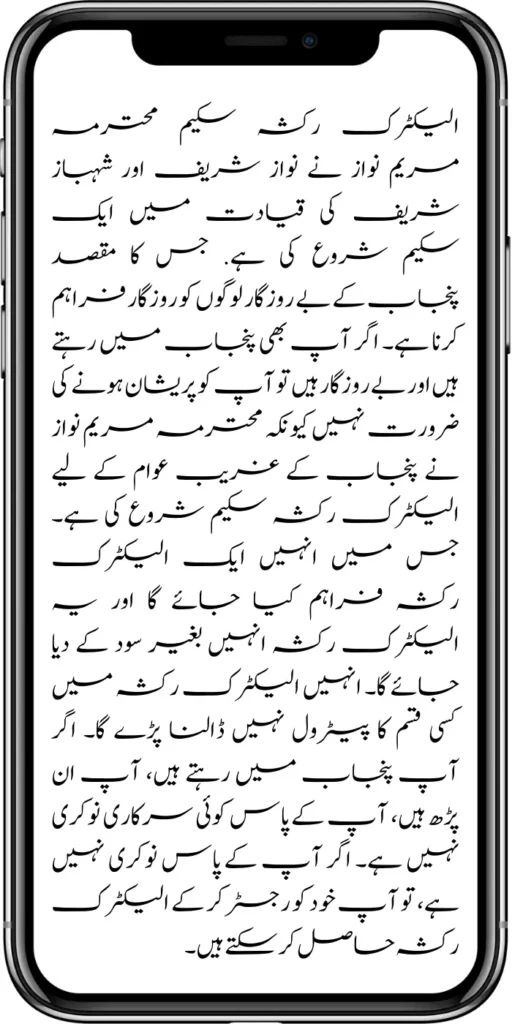 الیکٹرک رکشہ سکیم محترمہ
مریم نواز نے نواز شریف اور شہباز
شریف کی قیادت میں ایک
سکیم شروع کی ہے. جس کا مقصد
پنجاب کے بے روزگار لوگوں کو روزگار فراہم
کرنا ہے۔ اگر آپ بھی پنجاب میں رہتے
ہیں اور بے روزگار ہیں تو آپ کو پریشان ہونے کی
ضرورت نہیں کیونکہ محترمہ مریم نواز
نے پنجاب کے غریب عوام کے لیے
الیکٹرک رکشہ سکیم شروع کی ہے۔
جس میں انہیں ایک الیکٹرک
رکشہ فراہم کیا جائے گا اور یہ
الیکٹرک رکشہ انہیں بغیر سود کے دیا
جائے گا۔ انہیں الیکٹرک رکشہ میں
کسی قسم کا پیٹرول نہیں ڈالنا پڑے گا۔ اگر
آپ پنجاب میں رہتے ہیں، آپ ان
پڑھ ہیں، آپ کے پاس کوئی سرکاری نوکری
نہیں ہے۔ اگر آپ کے پاس نوکری نہیں
ہے، تو آپ خود کو رجسٹر کر کے الیکٹرک
رکشہ حاصل کر سکتے ہیں۔